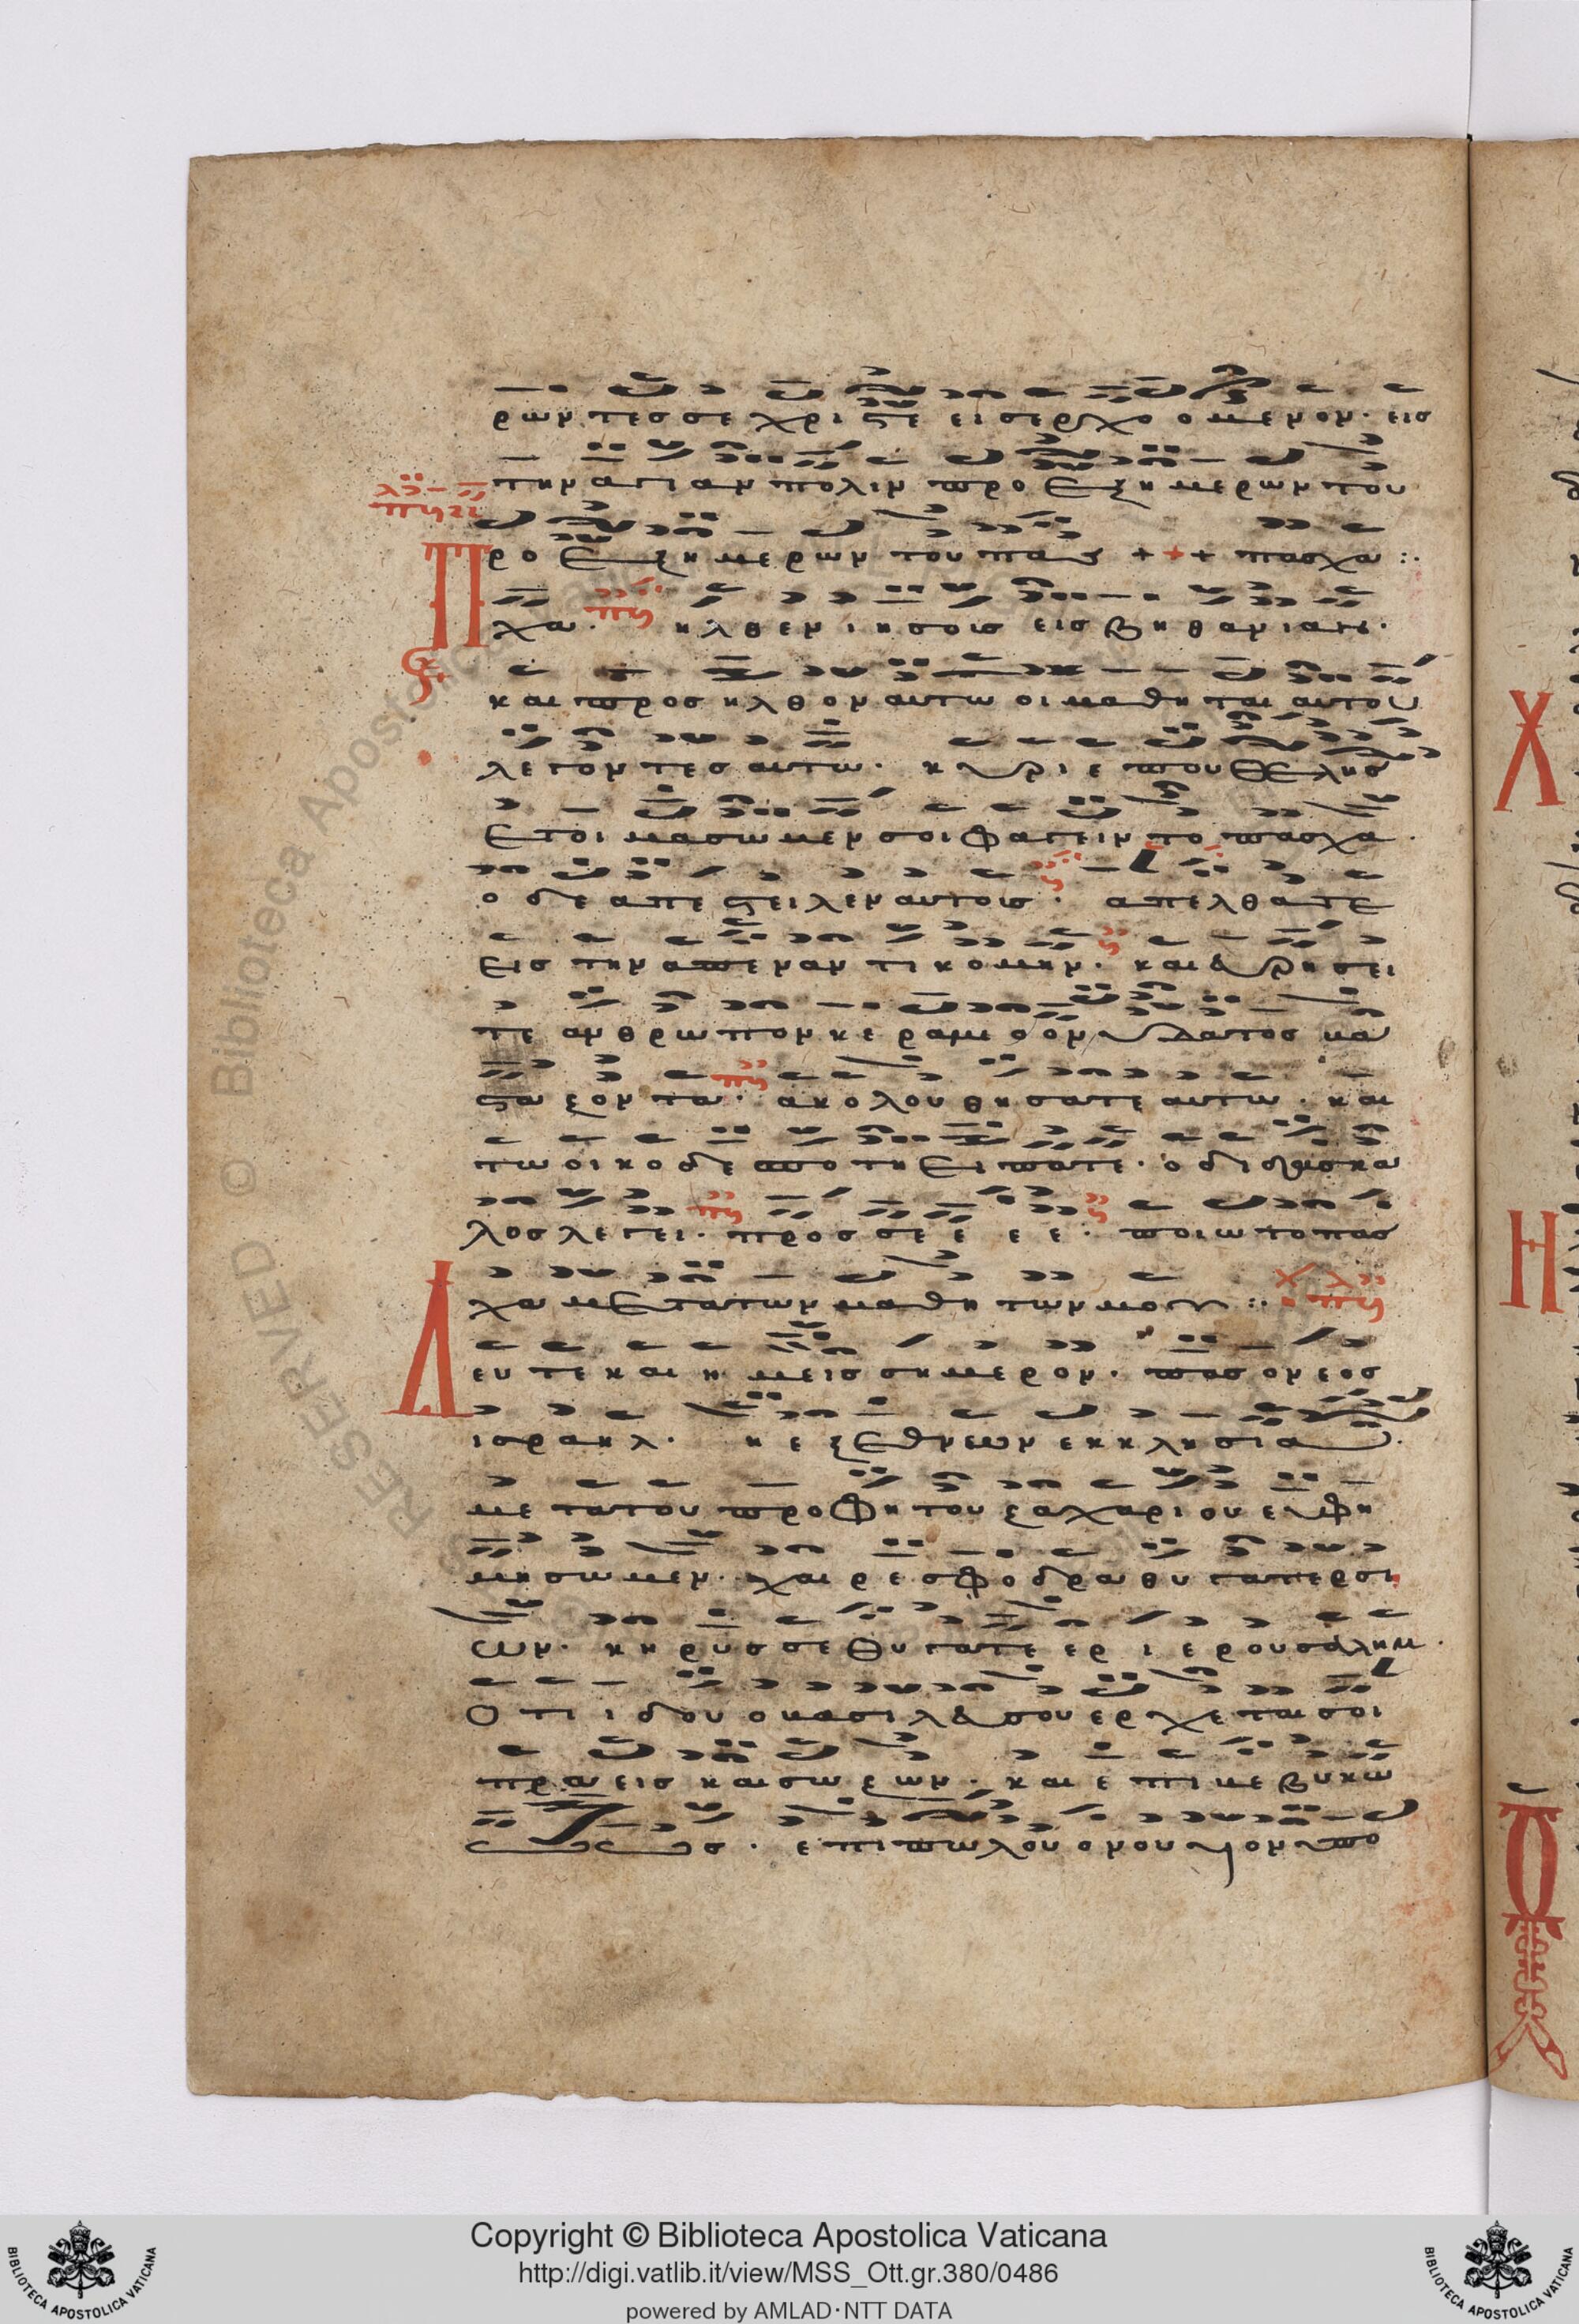 ρων τεσ σε χρι ϛε ει σερχο ο με νον· εισ
την αγι αν πολιν προ εξη με ρων του
Προ εξη με ρων του πασ +++ πασχα :·
χα· ηλθεν ι ησους εισ βηθανιαν·
και προσ ηλθον αυτω οι μαθη ται αυτου
λεγον τεσ αυτω· κυρι ε που θελησ
ετοι μασωμεν σοι φαγειν το πασχα·
ο δε απε ϛειλεν αυτοισ· απελθατε
εισ την απεναν τι κομην· και ευρησει
τε ανθρωπον κε ραμι ον υδατος βα
ϛα ζον τα· ακολουθησατε αυτω· και
τω οικο δε σπο τη ειπατε· ο διδασκα
λοσ λεγει· προσ σε ε ε ε· ποιω το πασ
χα με τα των μαθη των μου :·
Δευ τε και η μεισ σημερον· πασ ο νεοσ
ισραηλ· η εξ εθνεων εκκλησια·
με τα του προφη του ζαχαριου εκφη
μησωμεν· χαιρε σφοδρα θυγατερ σι
ων· κηρυσσε θυγατε ερ ι ερουσαλημ·
Οτι ιδου ο βασιλευ σου ερχεται σοι
πρα εισ και σω ζων· και ε πι βε βυκω
ωσ· επι πωλου ονου υιον υπο
Copyright © Biblioteca Apostolica Vaticana
http://digi.vatlib.it/view/MSS_Ott.gr.380/0486
powered by AMLAD·NTT DATA